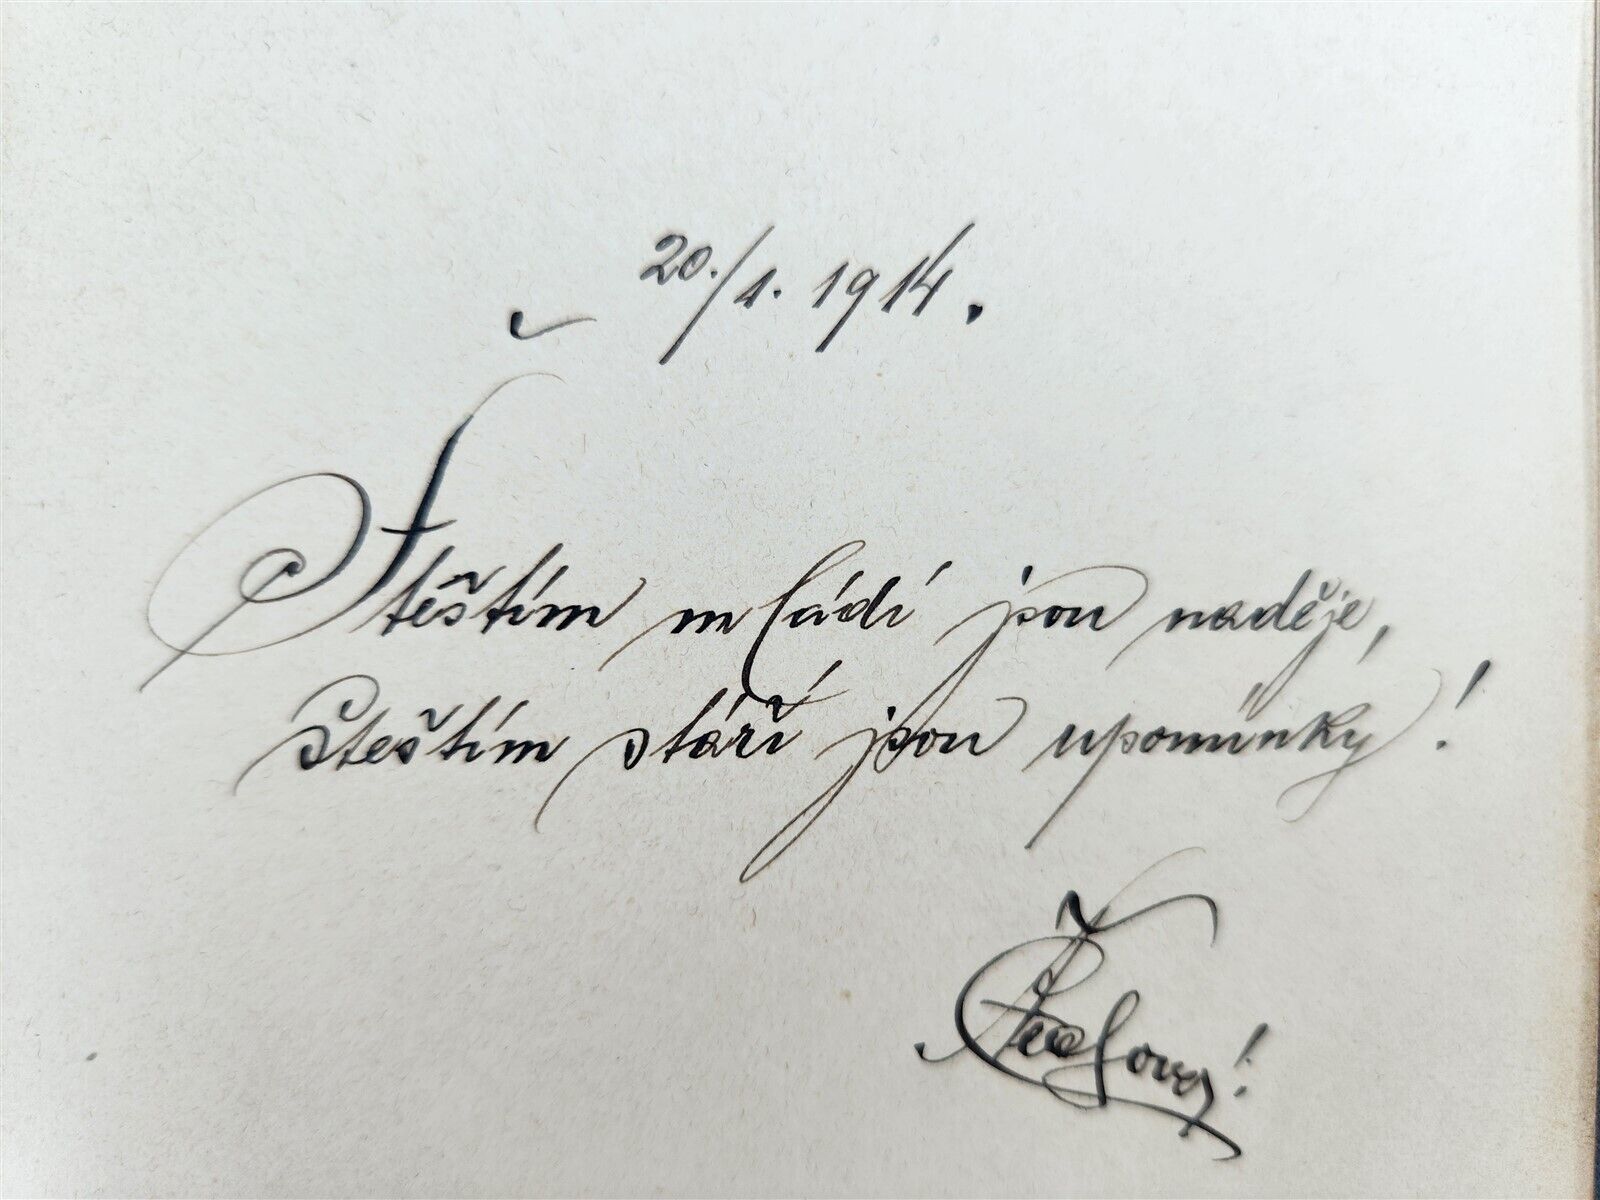 20./1. 1914.
Štěstím mládí jsou naděje,
štěstím stáří jsou upomínky!